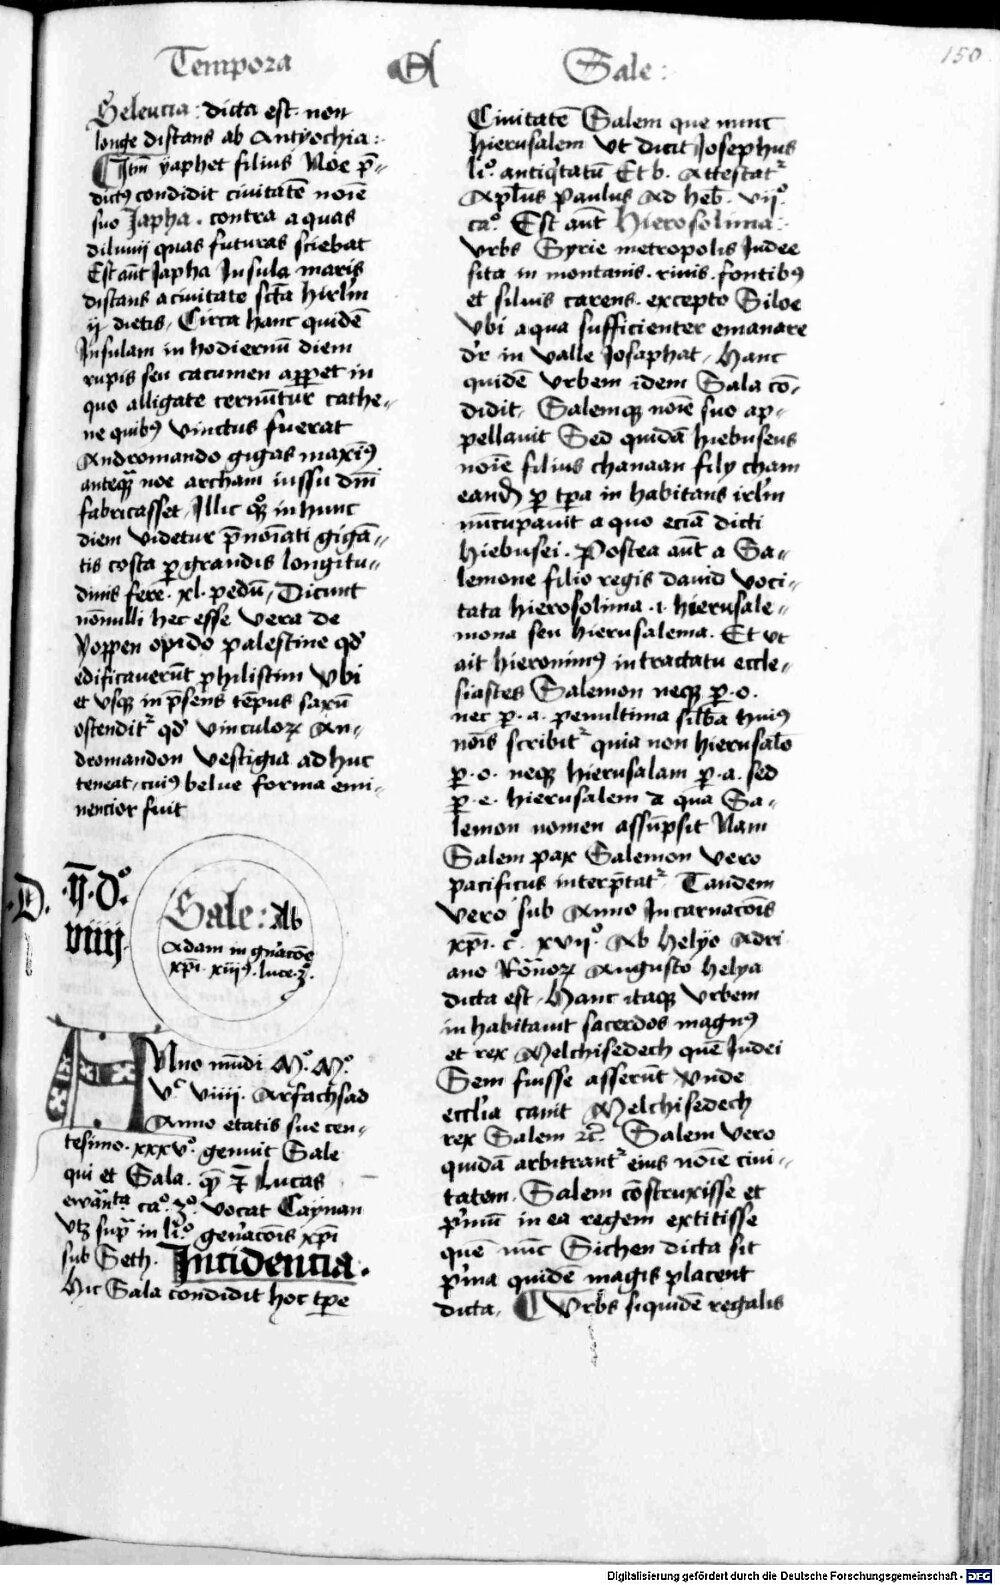 Tempora A Sale:
150
Seleucia: dicta est non
longe distans ab Antyochia:
Itm̄ yaphet filius Noe p̄-
dictꝰ condidit ciuitatē noīe
suo Japha. contra aquas
diluuij quas futuras sciebat
Est aūt Japha Insula maris
distans a ciuitate sct̄a hirl̄m
ij dietis, Circa hanc quidē
Insulam in hodiernū diem
rupis seu cacumen apꝑet in
quo alligate cernūtur cathe-
ne quibꝰ vinctus fuerat
Andromando gigas maxīꝰ
anteqꝫ noe archam iussu dn̄i
fabricasset, Illic qͦꝫ in hunc
diem videtur p̄noīati gigā-
tis costa ꝑgrandis longitu-
dinis fere. xl. pedū, Dicunt
nōnulli hec esse vera de
Yoppen opido palestine qđ
edificauerūt philistim vbi
et vsqꝫ in p̄sens tēpus saxū
ostenditᷣ qđ vinculoꝝ An-
dromandon vestigia adhuc
teneat, cuiꝰ belue forma emi-
nencior fuit
D. ij. dͦ.
viiij
Sale: Ab
Adam in gn̄acōe
xp̄i. xiijꝰ. luce. 3ͦ.
Anno mūdi Mͦ. Mͦ.
vͨ viiij. Arfachsad
Anno etatis sue cen-
tesimo. xxxvͦ. genuit Sale
qui et Sala. Lucas
ewāta. caͦ. 3ͦ. vocat Caynan
vtꝫ supͣ in liͦ. gen̄acōis xp̄i
sub Seth. Incidencia.
Hic Sala condidit hoc tꝑe
Ciuitatē Salem que nunc
hierusalem vt dicit Josephus
liͦ. antiqͥtatū Et b. Attestatᷣ
Apl̄us Paulus Ad heb. vijͦ.
caͦ. Est aūt Hierosolima:
vrbs Syrie metropolis Judee
sita in montanis. riuis. fontibꝰ
et siluis carens. excepto Siloe
vbi aqua sufficienter emanare
dr̄ in valle Josaphat, Hanc
quidē vrbem idem Sala cō-
didit, Salemqꝫ noīe suo ap-
pellauit Sed quidā hiebuseus
noīe filius chanaan filij cham
eandē ꝑ tꝑa inhabitans irl̄m
nūcupauit a quo eciā dicti
hiebusei. Postea aūt a Sa-
lemone filio regis dauid voci-
tata hierosolima .i. hierusale-
mona seu hierusalema. Et vt
ait hieronimꝰ in tractatu eccle-
siastes Salemon neqꝫ ꝑ .o.
nec ꝑ .a. penultima sill̄ba huiꝰ
nōis scribitᷣ quia non hierusalō
ꝑ .o. neqꝫ hierusalam ꝑ .a. sed
ꝑ .e. hierusalem a qua Sa-
lemon nomen assūpsit Nam
Salem pax Salemon vero
pacificus interp̄tatᷣ Tandem
vero sub Anno Incarnacōis
xp̄i. cͦ. xvijͦ. Ab Helyo Adri
ano Rōnoꝝ Augusto helya
dicta est, Hanc itaqꝫ vrbem
inhabitauit sacerdos magnꝰ
et rex Melchisedech quē Judei
Sem fuisse asserūt vnde
eccl̄ia canit Melchisedech
rex Salem ⁊c̄. Salem vero
quidā arbitrantᷣ eius noīe ciui-
tatem. Salem cōstruxisse et
pͥmū in ea regem extitisse
quē nūc Sichen dicta sit
pͥma quidē magis placent
dicta, vrbs siquidē regalis
Digitalisierung gefördert durch die Deutsche Forschungsgemeinschaft - DFG